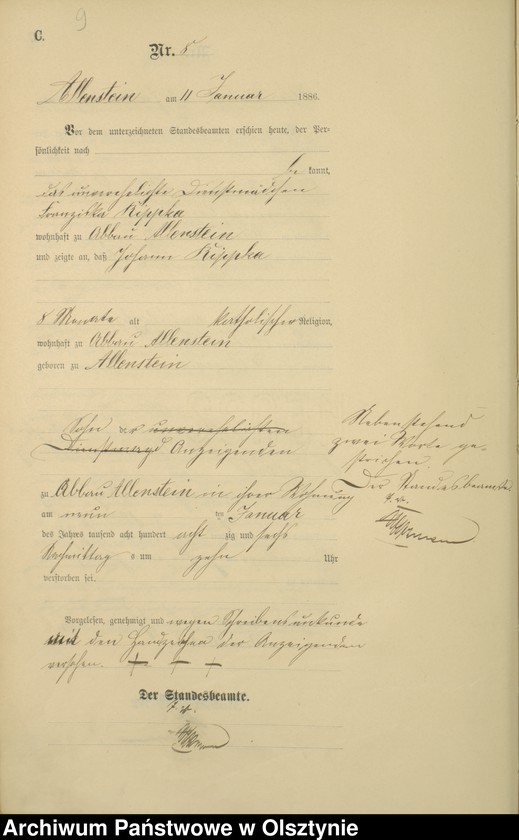 9
C.
Nr. 8
Allenstein am 11 Januar 1886.
Vor dem unterzeichneten Standesbeamten erschien heute, der Per-
sönlichkeit nach
be kannt,
das unverehelichte Dienstmädchen
Franziska Kippka
wohnhaft zu Abbau Allenstein
und zeigte an, daß Johann Kippka
8 Monate alt katholischer Religion,
wohnhaft zu Abbau Allenstein
geboren zu Allenstein
Sohn der unverehelichten
Dienstmagd Anzeigenden
Nebenstehend
zwei Worte ge-
strichen.
Der Standesbeamte
zu Abbau Allenstein in ihrer Wohnung
am neun ten Januar
des Jahres tausend acht hundert acht zig und sechs
Nachmittag s um zehn Uhr
verstorben sei.
Vorgelesen, genehmigt und wegen Schreibensunkunde
mit den Handzeichen der Anzeigenden
versehen. + + +
Der Standesbeamte.
Archiwum Państwowe w Olsztynie